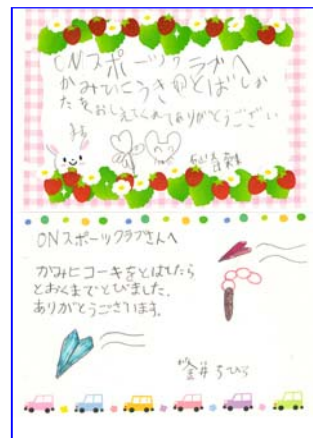 ONスポーツクラブへ
かみひこうきのとばしか
たをおしえてくれてありがとうござい
ます
ONスポーツクラブさんへ
かみヒコーキをとばしたら
とおくまでとびました。
ありがとうございます。